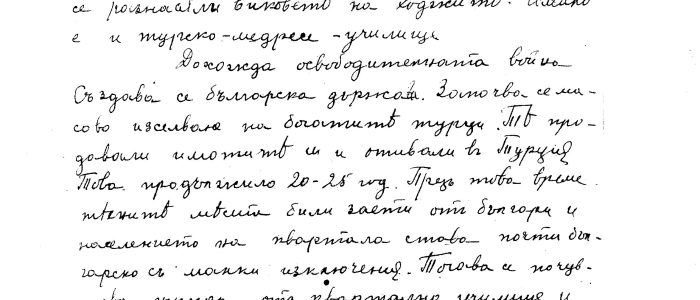 се разнасяли виковетѣ на ходжитѣ. Имало
е и турско-медресе -училище
Дохожда освободителната война
Създава се българска държава. Започва се ма-
сово изселване на богатитѣ турци. Тѣ про-
давали имотитѣ си и отивали въ Турция
Това продължило 20-25 год. Презъ това време
тѣхнитѣ мѣста били заети отъ българи и
населението на квартала става почти бъл-
гарско съ малки изключения. Тогава се почув-
отъ квартално училище и